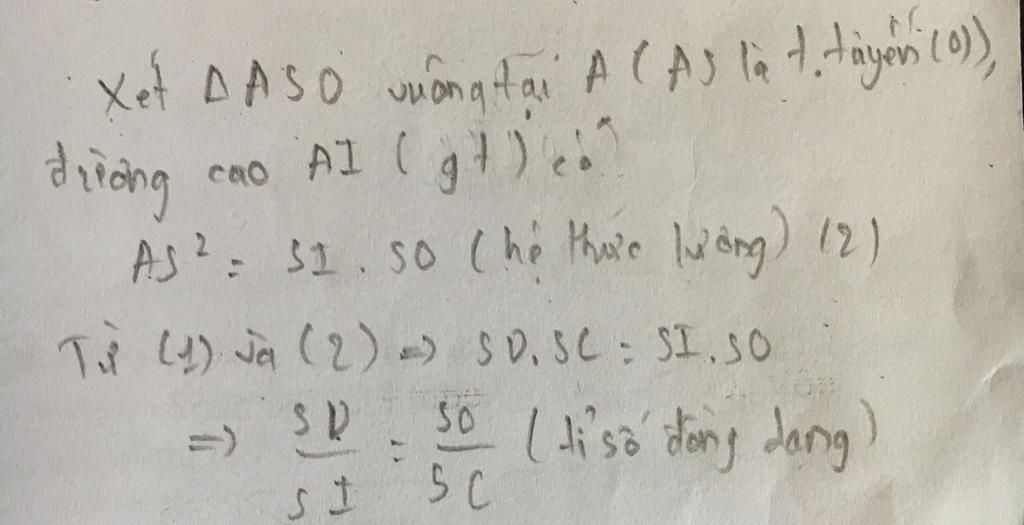 Xét ΔASO vuông tại A (AS là t.tuyến (O)),
đường cao AI (gt) có
AS² = SI . SO (hệ thức lượng) (2)
Từ (1) và (2) => SD.SC = SI.SO
=> SD/SI = SO/SC (tỉ số đồng dạng)